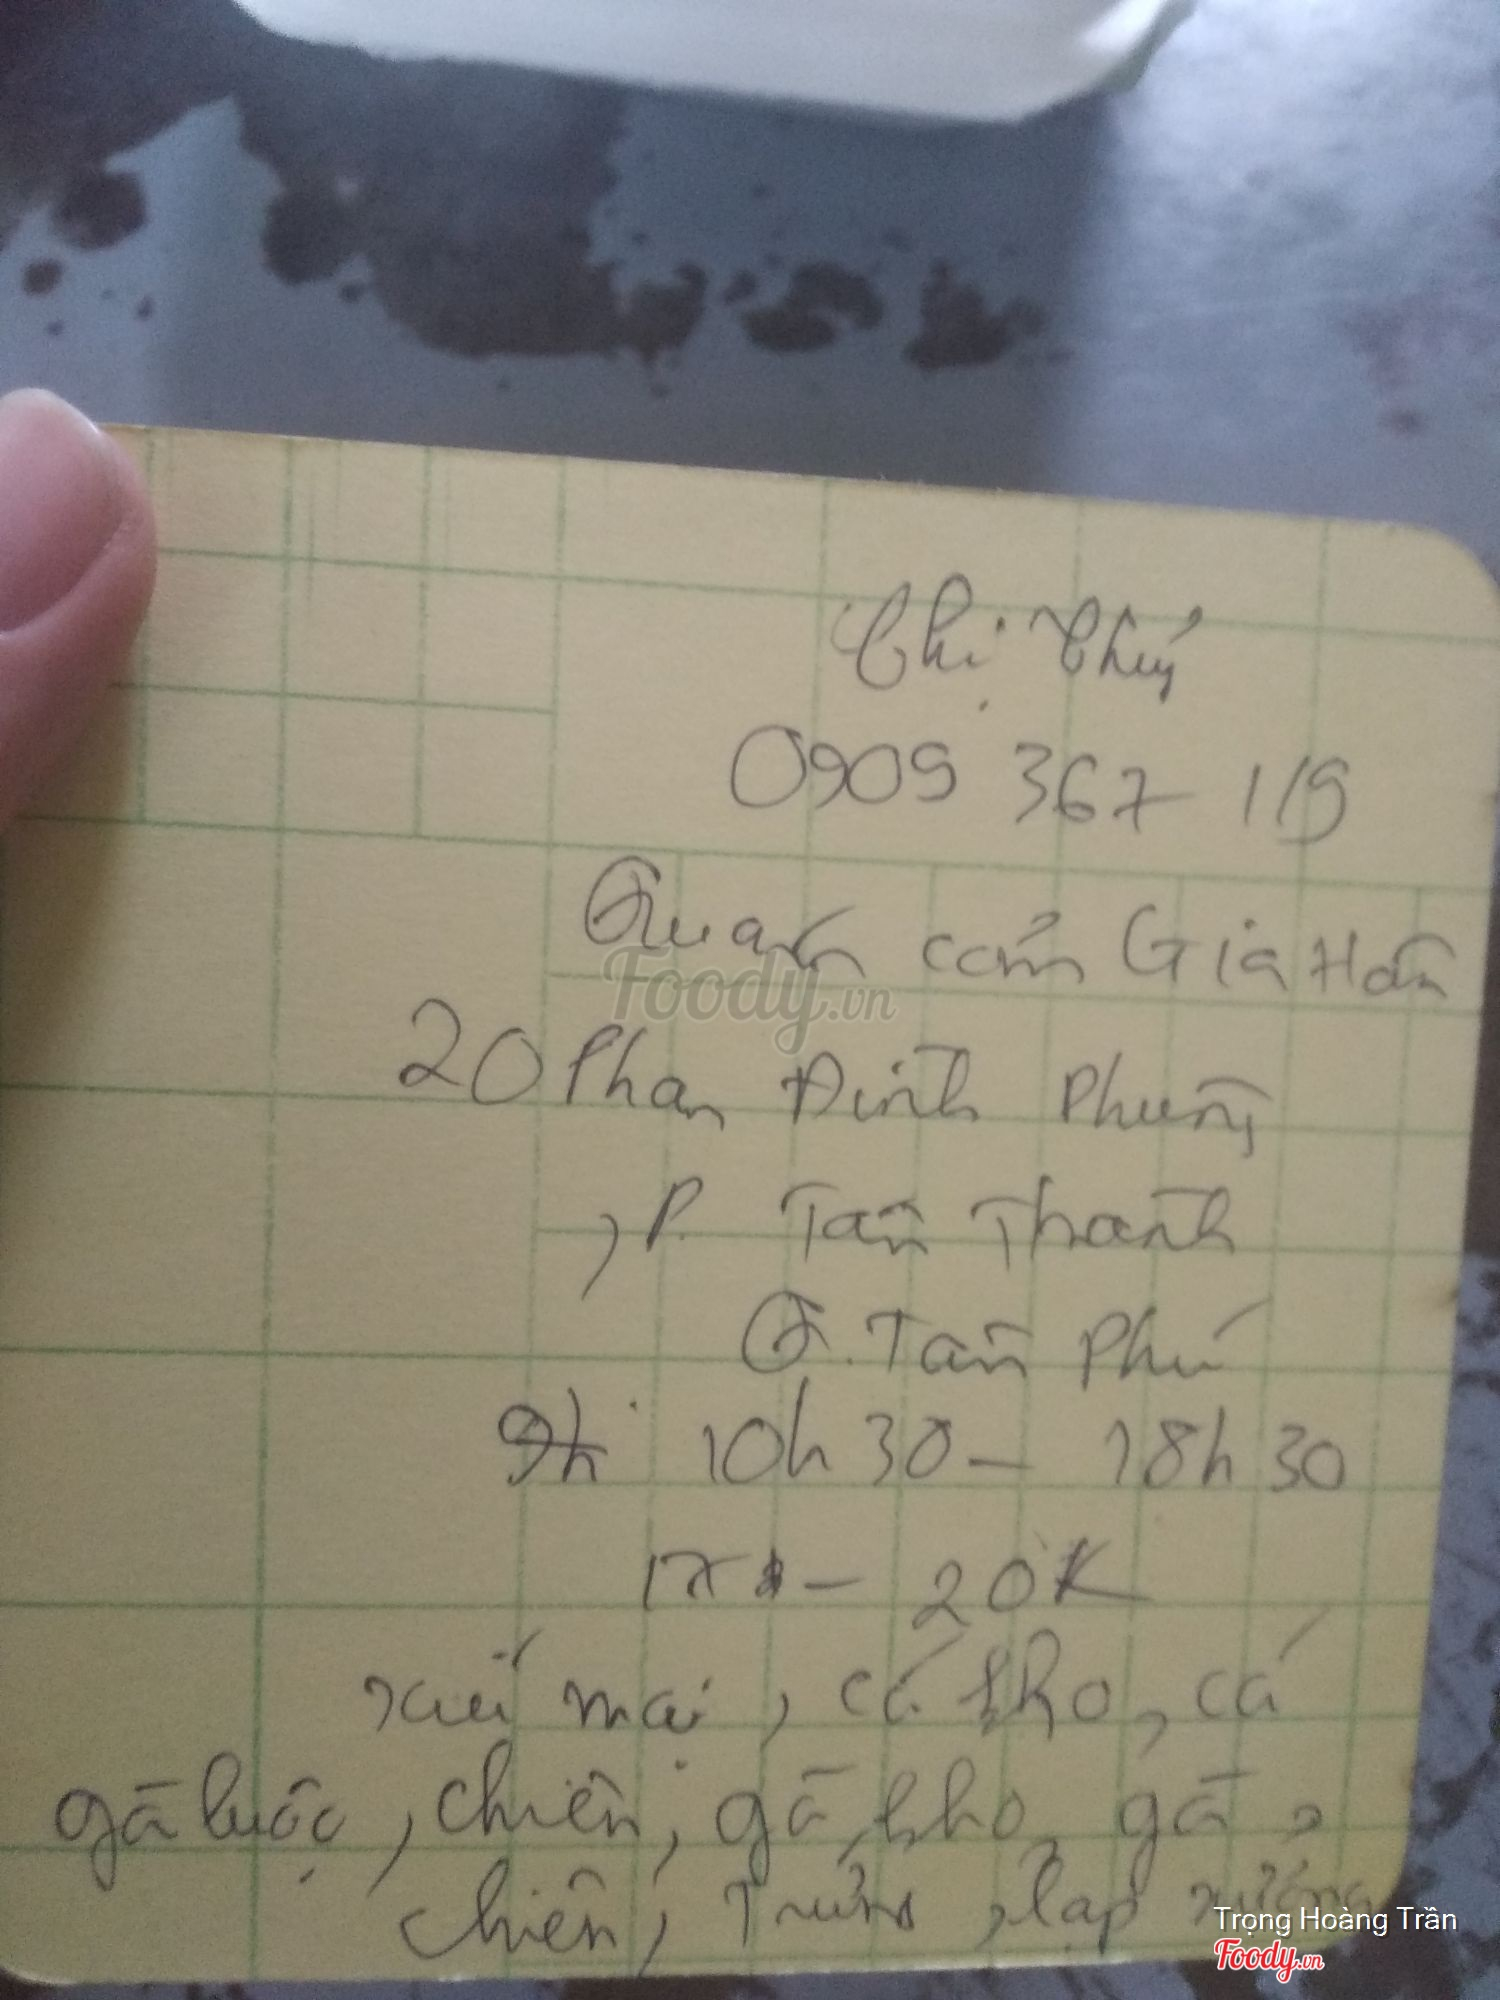 Chị Thúy
0909 367 119
Quán cơm Gia Hân
20 Phan Đình Phùng
, P. Tân Thành
Q. Tân Phú
9h 10h30 - 18h30
17 - 20K
xíu mại, cá kho, cá
gà luộc, chiên, gà kho, gà,
chiên, Trứng, lạp xưởng
Foody.vn
Trọng Hoàng Trần
Foody.vn